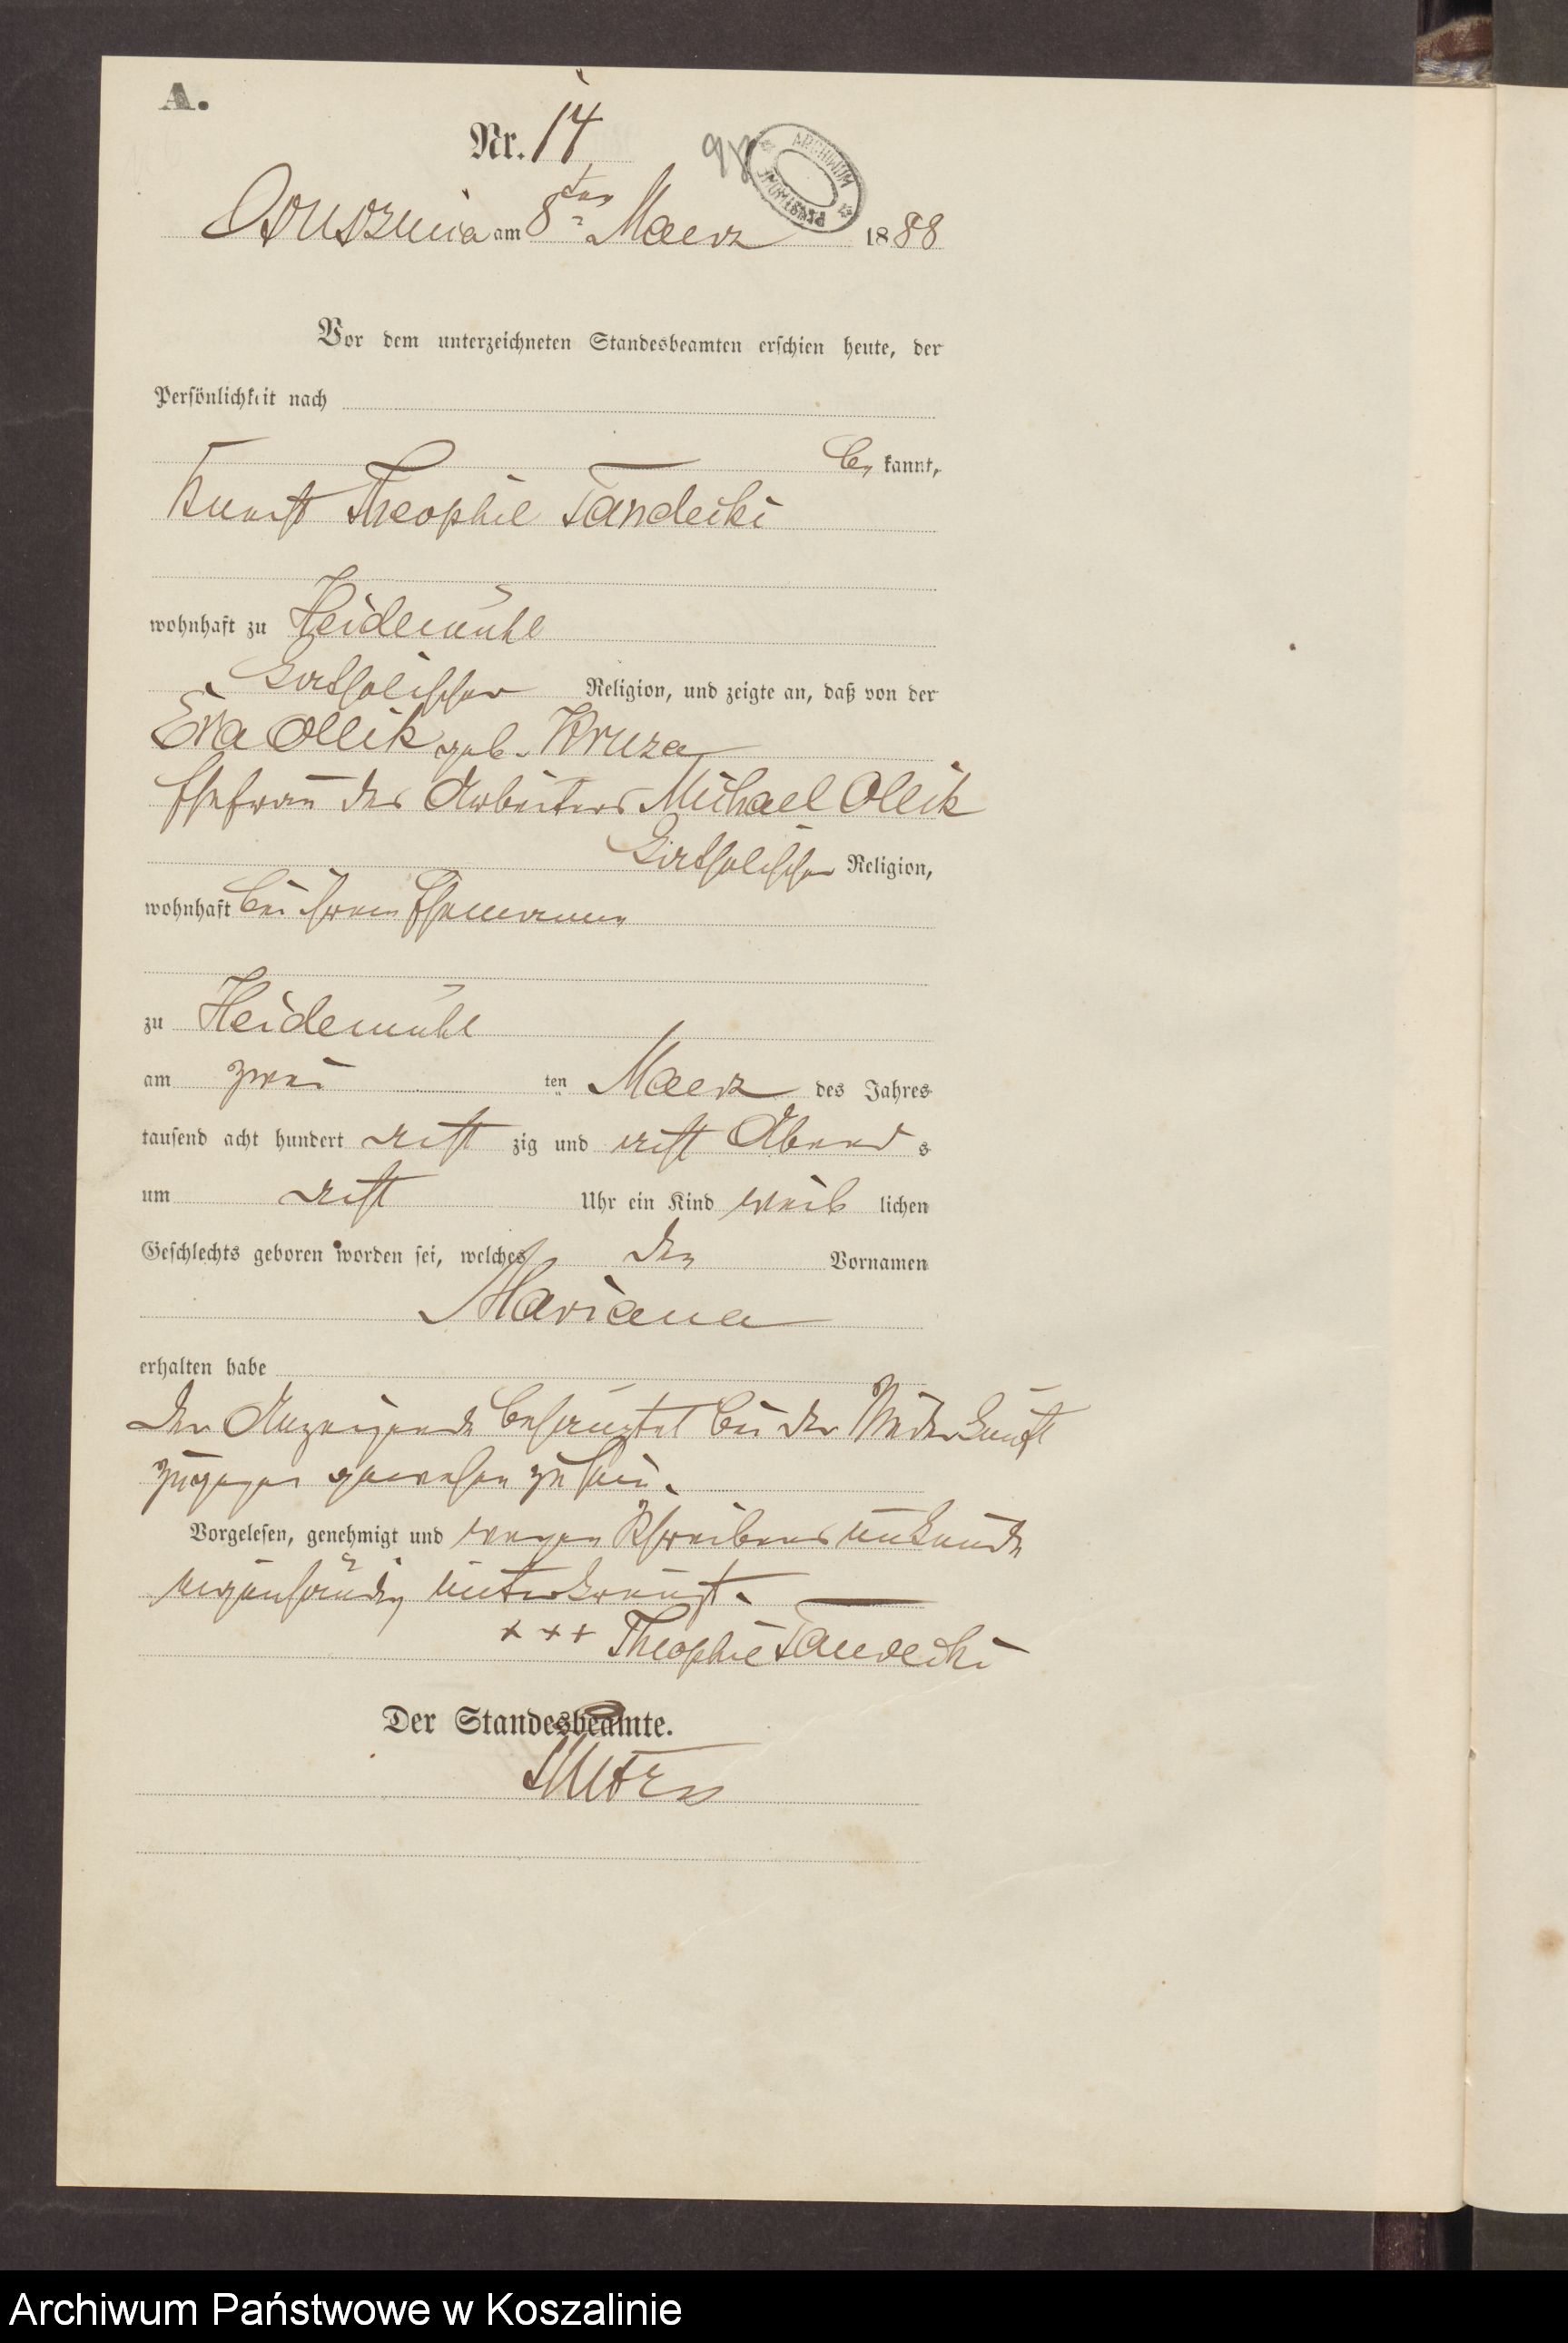 A.
Nr. 14
ARCHIWUM
am 8ten Maerz 1888
Vor dem unterzeichneten Standesbeamten erschien heute, der
Persönlichkeit nach
be kannt,
Theophil Tandecki
wohnhaft zu Heidemühl
katholischer Religion, und zeigte an, daß von der
Eva Ollik geb. Kruza
Ehefrau des Arbeiters Michael Ollik
katholischer Religion,
wohnhaft bei ihrem Ehemanne
zu Heidemühl
am zwei ten Maerz des Jahres
tausend acht hundert acht zig und acht Abend s
um acht Uhr ein Kind weib lichen
Geschlechts geboren worden sei, welches den Vornamen
Mariana
erhalten habe
Der Anzeigende behauptet bei der Niederkunft
zugegen gewesen zu sein.
Vorgelesen, genehmigt und wegen Schreibens unkunde
eigenhändig unterkreuzt.
+++ Theophil Tandecki
Der Standesbeamte.
Archiwum Państwowe w Koszalinie